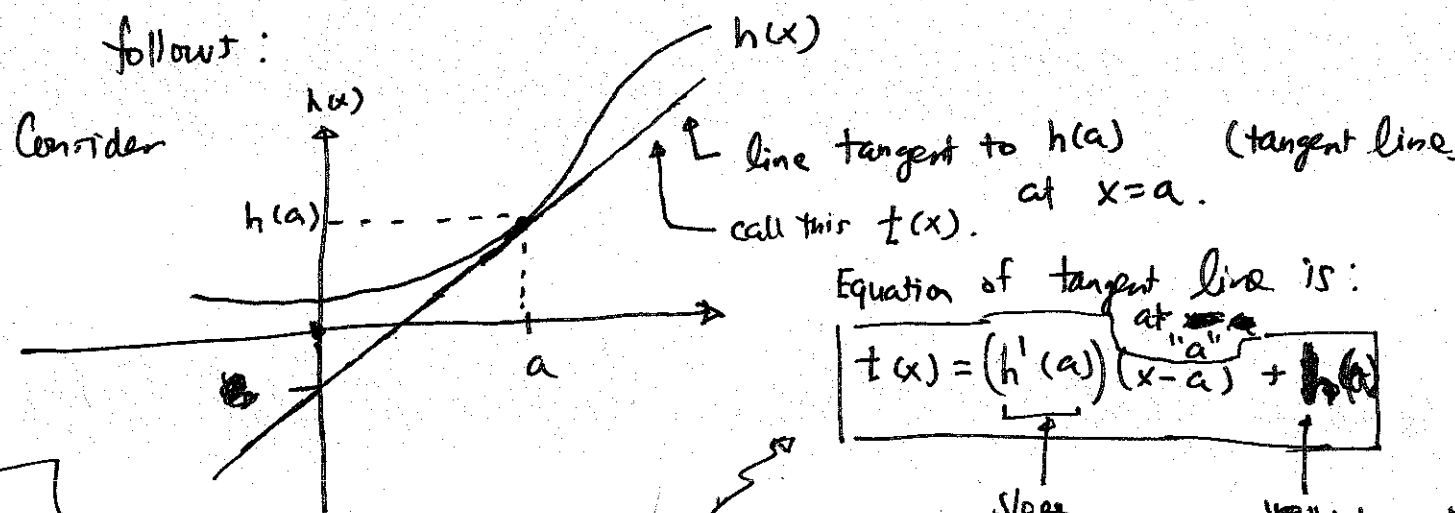 follows :
h(x)
h(x)
Consider
line tangent to h(a) (tangent line
at x=a.
h(a)
call this t(x).
Equation of tangent line is:
at "a"
a
t(x) = (h'(a))(x-a) + h(a)
slope